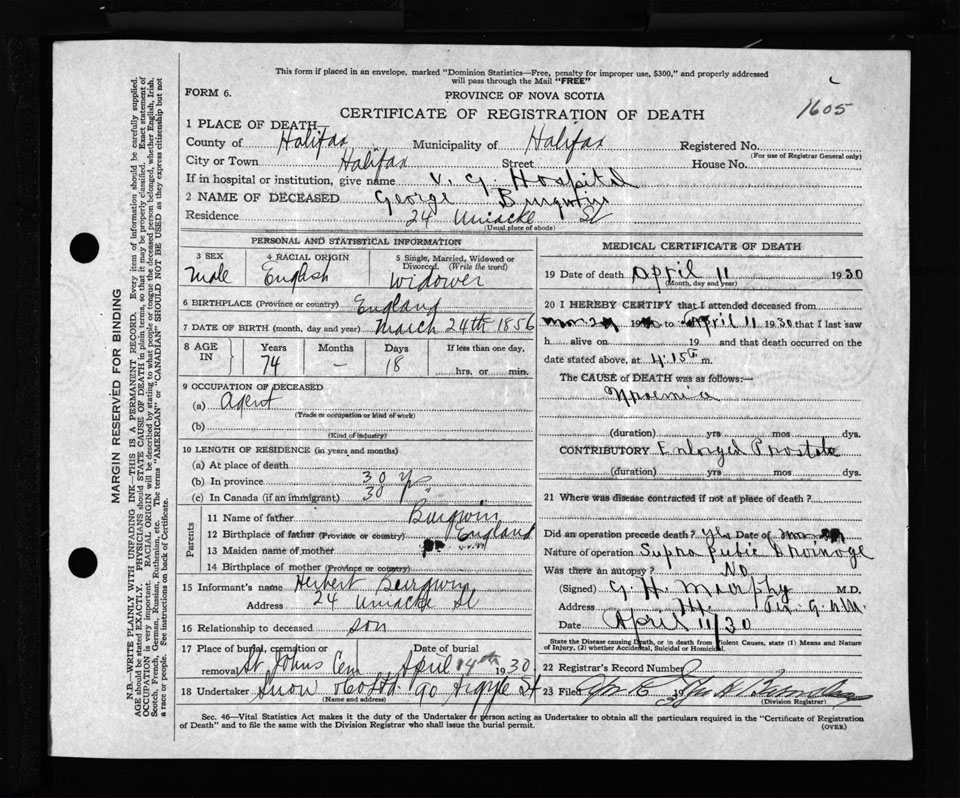 This form if placed in an envelope, marked "Dominion Statistics—Free, penalty for improper use, $300," and properly addressed
will pass through the Mail "FREE"
FORM 6.
PROVINCE OF NOVA SCOTIA
1605
CERTIFICATE OF REGISTRATION OF DEATH
1 PLACE OF DEATH—
County of Halifax Municipality of Halifax Registered No.
(For use of Registrar General only)
City or Town Halifax Street House No.
If in hospital or institution, give name V. G. Hospital
2 NAME OF DECEASED George Burgwin
Residence 24 Uniacke St
(Usual place of abode)
PERSONAL AND STATISTICAL INFORMATION
3 SEX 4 RACIAL ORIGIN 5 Single, Married, Widowed or Divorced. (Write the word)
Male English Widower
6 BIRTHPLACE (Province or country) England
7 DATE OF BIRTH (month, day and year) March 24th 1856
8 AGE IN Years Months Days If less than one day,
74 — 18 hrs. or min.
9 OCCUPATION OF DECEASED
(a) Agent
(Trade or occupation or kind of work)
(b)
(Kind of industry)
10 LENGTH OF RESIDENCE (in years and months)
(a) At place of death
(b) In province 30 yrs
(c) In Canada (if an immigrant) 30 "
Parents
11 Name of father Burgwin
12 Birthplace of father (Province or country) England
13 Maiden name of mother
14 Birthplace of mother (Province or country)
15 Informant's name Herbert Burgwin
Address 24 Uniacke St
16 Relationship to deceased son
17 Place of burial, cremation or removal Date of burial
St Johns Cem April 14th 1930
18 Undertaker Snow & Co Ltd. 90 Argyle St
(Name and address)
MEDICAL CERTIFICATE OF DEATH
19 Date of death April 11 1930
(Month, day and year)
20 I HEREBY CERTIFY that I attended deceased from
to April 11 1930 that I last saw
h alive on 19 and that death occurred on the
date stated above, at 4.15 m.
The CAUSE OF DEATH was as follows:—
Uraemia
(duration) yrs mos dys.
CONTRIBUTORY Enlarged Prostate
(duration) yrs mos dys.
21 Where was disease contracted if not at place of death?
Did an operation precede death? yes Date of
Nature of operation Supra pubic drainage
Was there an autopsy? No
(Signed) G. H. Murphy M.D.
Address
Date April 11/30
State the Disease causing Death, or in death from Violent Causes, state (1) Means and Nature
of Injury, (2) whether Accidental, Suicidal or Homicidal.
22 Registrar's Record Number
23 Filed 19
(Division Registrar)
Sec. 46—Vital Statistics Act makes it the duty of the Undertaker or person acting as Undertaker to obtain all the particulars required in the "Certificate of Registration
of Death" and to file the same with the Division Registrar who shall issue the burial permit.
(OVER)
MARGIN RESERVED FOR BINDING
N.B.—WRITE PLAINLY WITH UNFADING INK—THIS IS A PERMANENT RECORD. Every item of information should be carefully supplied.
AGE should be stated EXACTLY. PHYSICIANS should STATE CAUSE OF DEATH in plain terms, so that it may be properly classified. Exact statement of
OCCUPATION is very important. RACIAL ORIGIN will be described by stating to what people or tongue the deceased person belonged, whether English, Irish,
Scotch, French, German, Russian, Ruthenian, etc. The terms "AMERICAN" or "CANADIAN" SHOULD NOT BE USED as they express citizenship but not
a race or people. See instructions on back of Certificate.